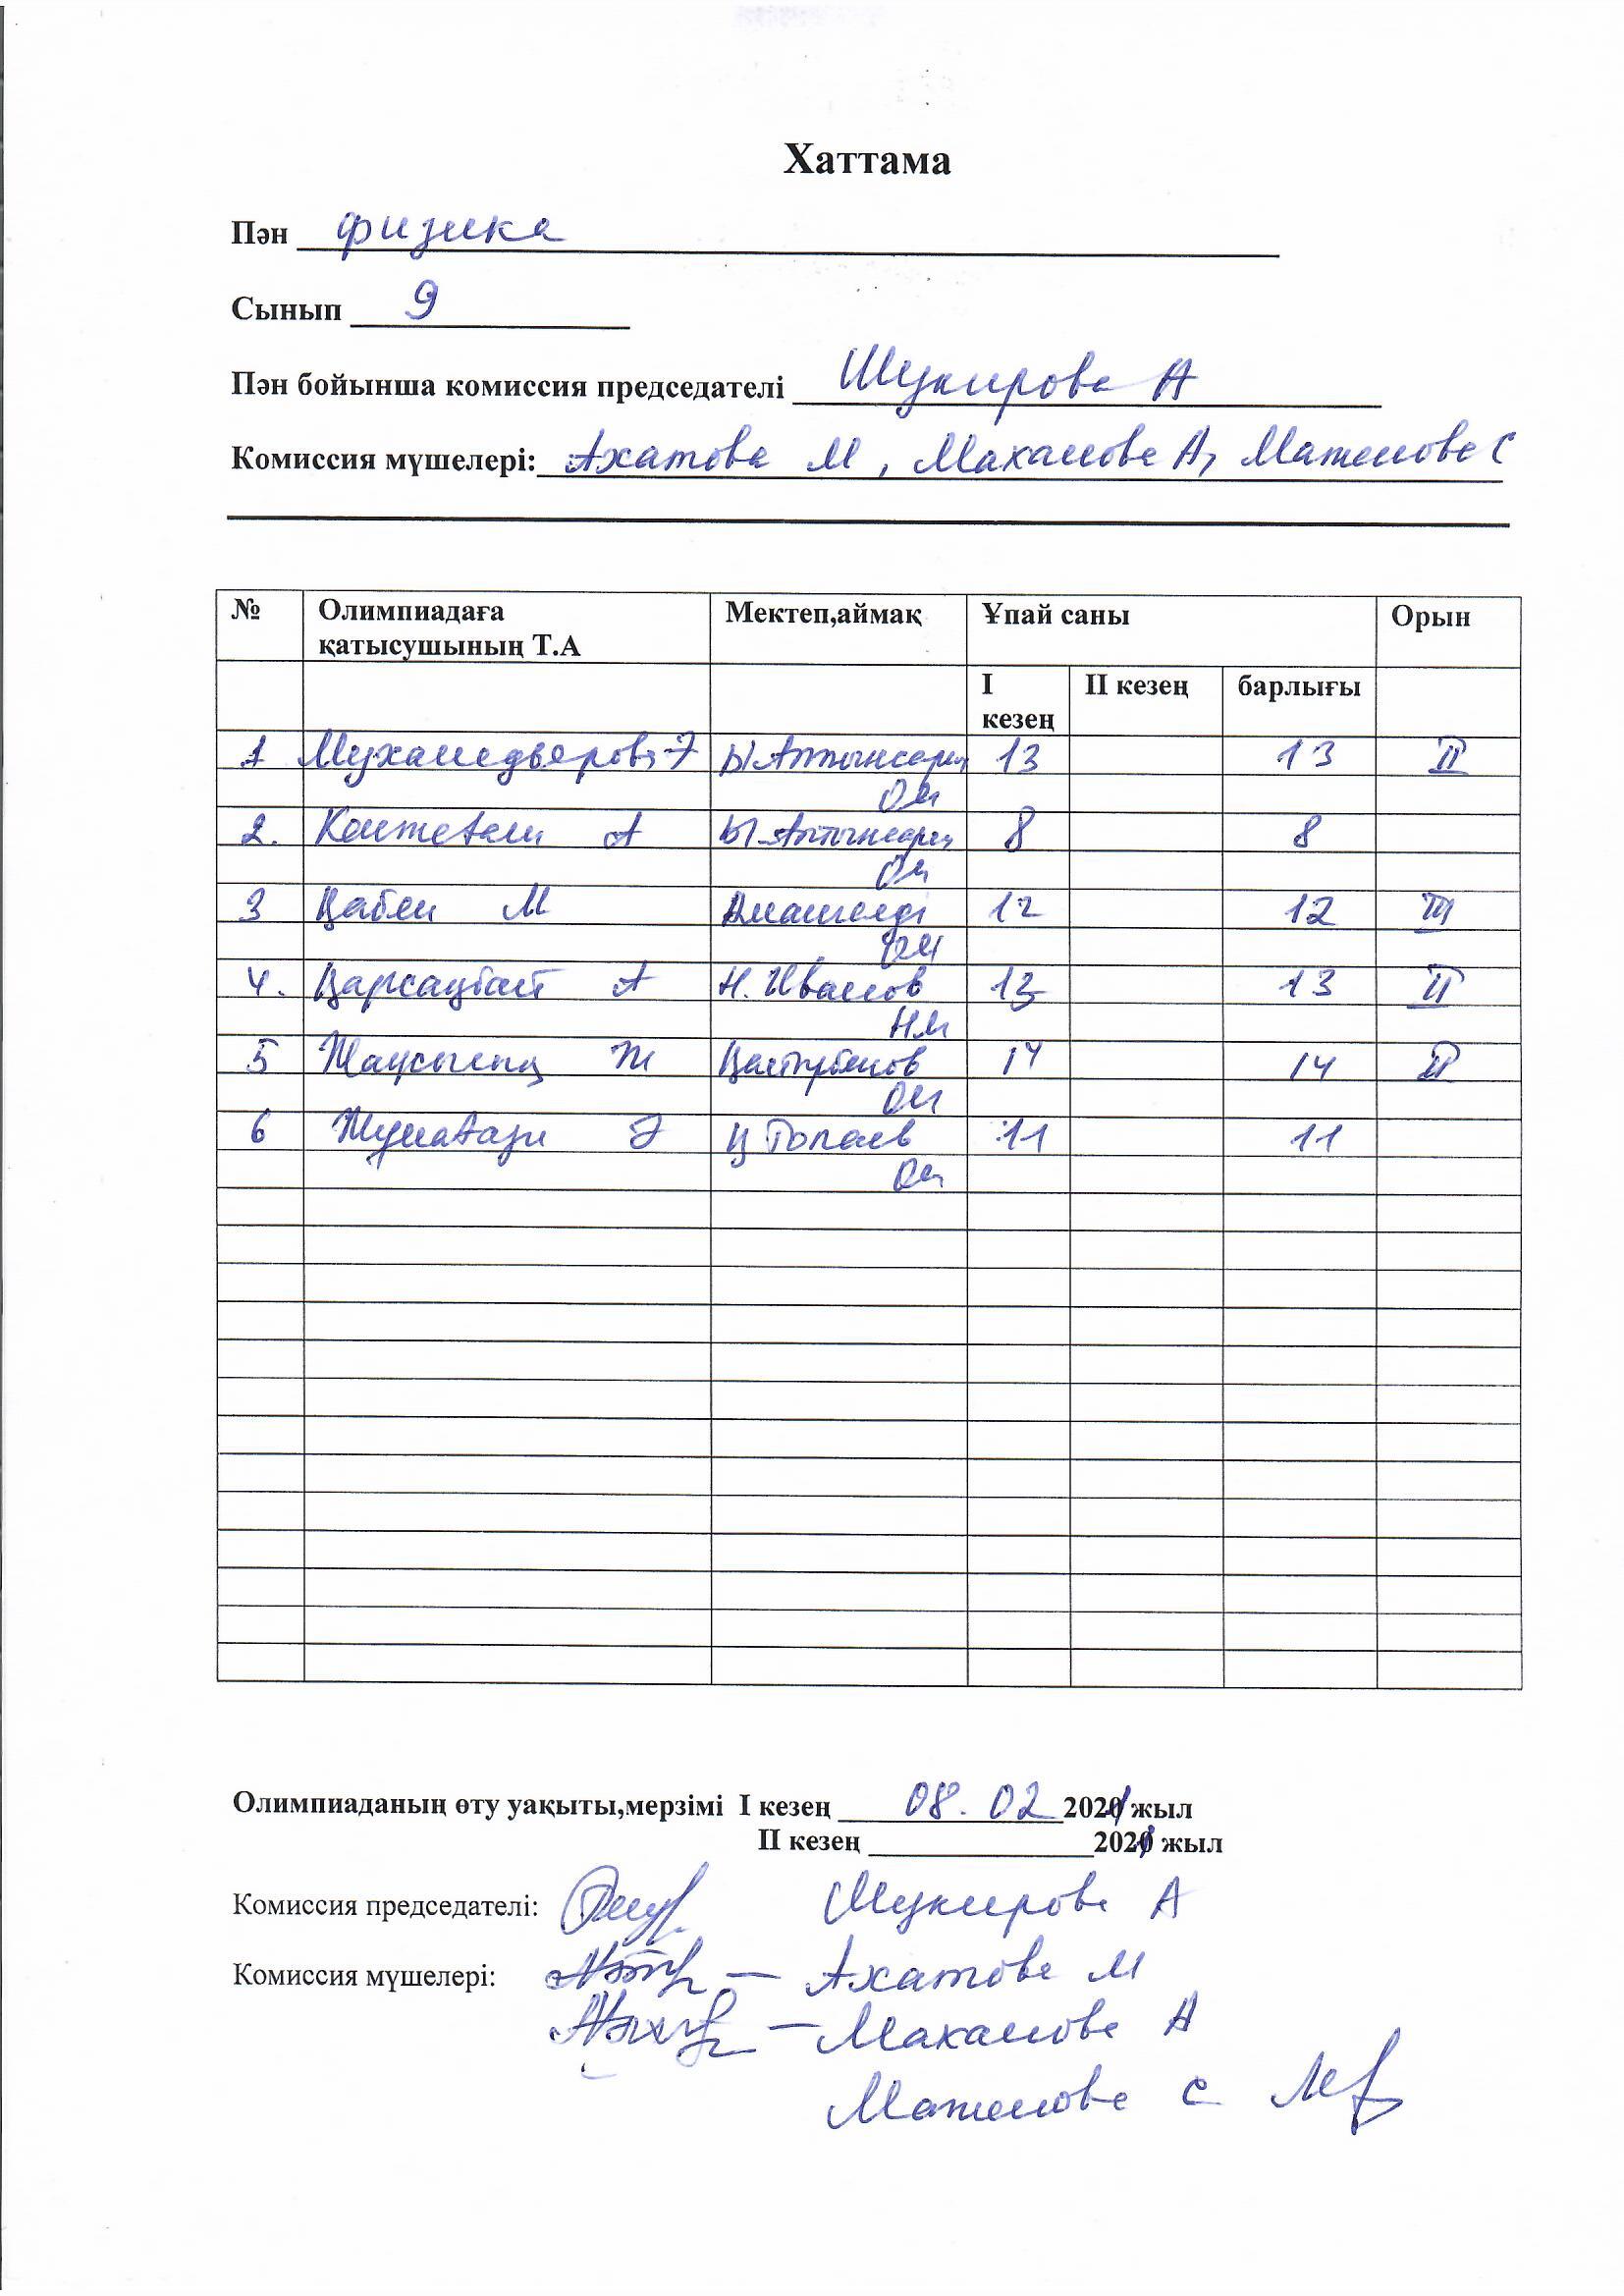 Хаттама
Пән физика
Сынып 9
Пән бойынша комиссия председателі Шукирова А
Комиссия мүшелері: Ахатова М, Маханова А, Маженова С
№ Олимпиадаға қатысушының Т.А Мектеп,аймақ Ұпай саны Орын
I кезең II кезең барлығы
1 Мухамедьярова Ә Ы Алтынсарин 13 13 II
ОМ
2. А Ы.Алтынсарин 8 8
ОМ
3 Қабди М Амангелді 12 12 III
ОМ
4. Қарсақбай А Н. Иванов 13 13 II
НМ
5 Жақсылық Ж 14 14 II
ОМ
6 Жумағази Ә 11 11
ОМ
Олимпиаданың өту уақыты,мерзімі I кезең 08.02 2021 жыл
II кезең 2021 жыл
Комиссия председателі: Шукирова А
Комиссия мүшелері: – Ахатова М
– Маханова А
Маженова С